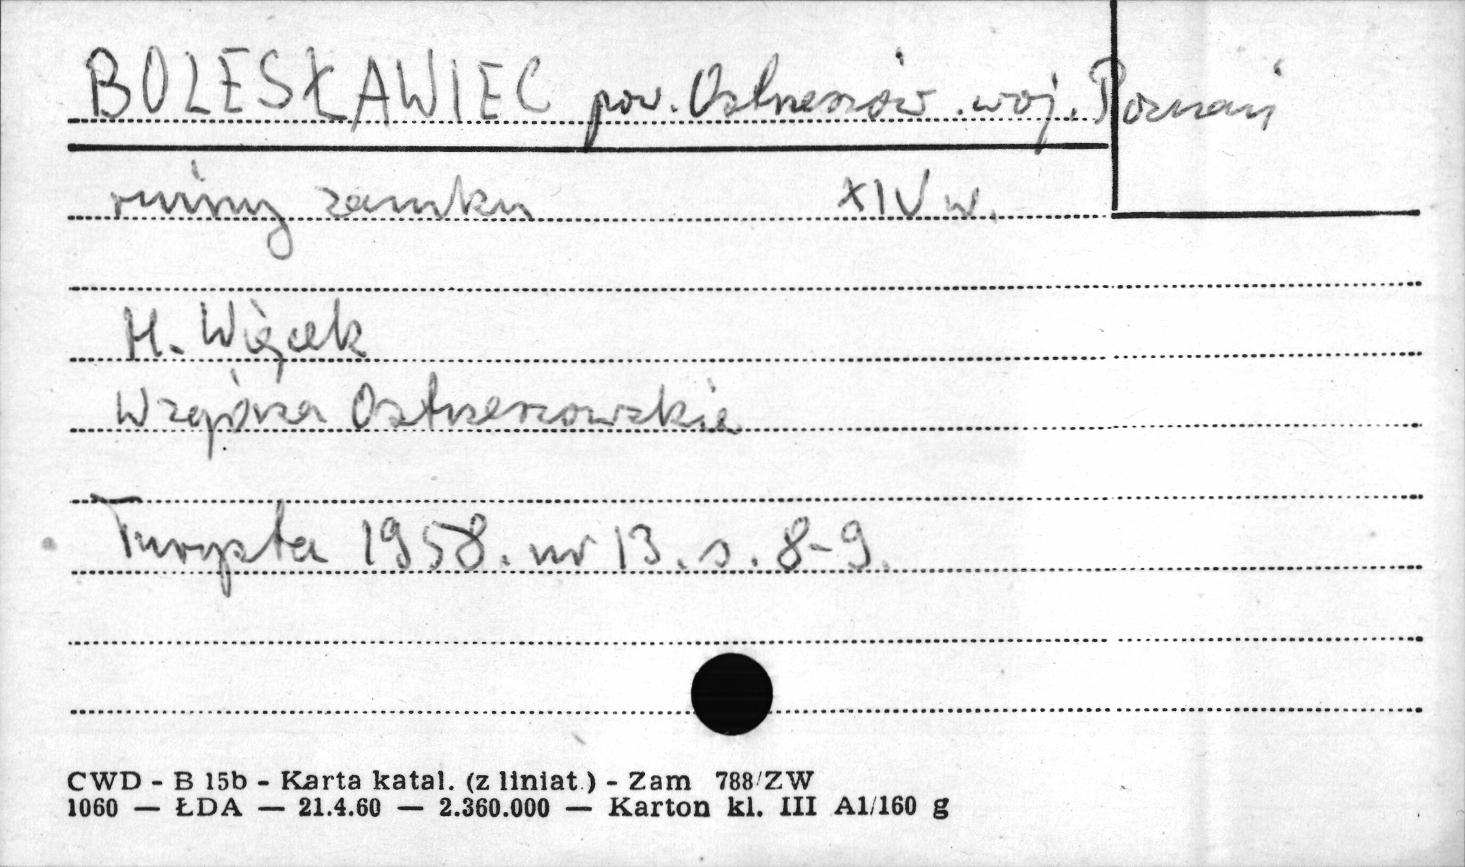 BOLESŁAWIEC pow. Ostrzeszów woj. Poznań
ruiny zamku XIV w.
H. Więcek
Wzgórza Ostrzeszowskie
Turysta 1958. nr 13. s. 8-9.
CWD - B 15b - Karta katal. (z liniat.) - Zam 788/ZW
1060 — ŁDA — 21.4.60 — 2.360.000 — Karton kl. III A1/160 g